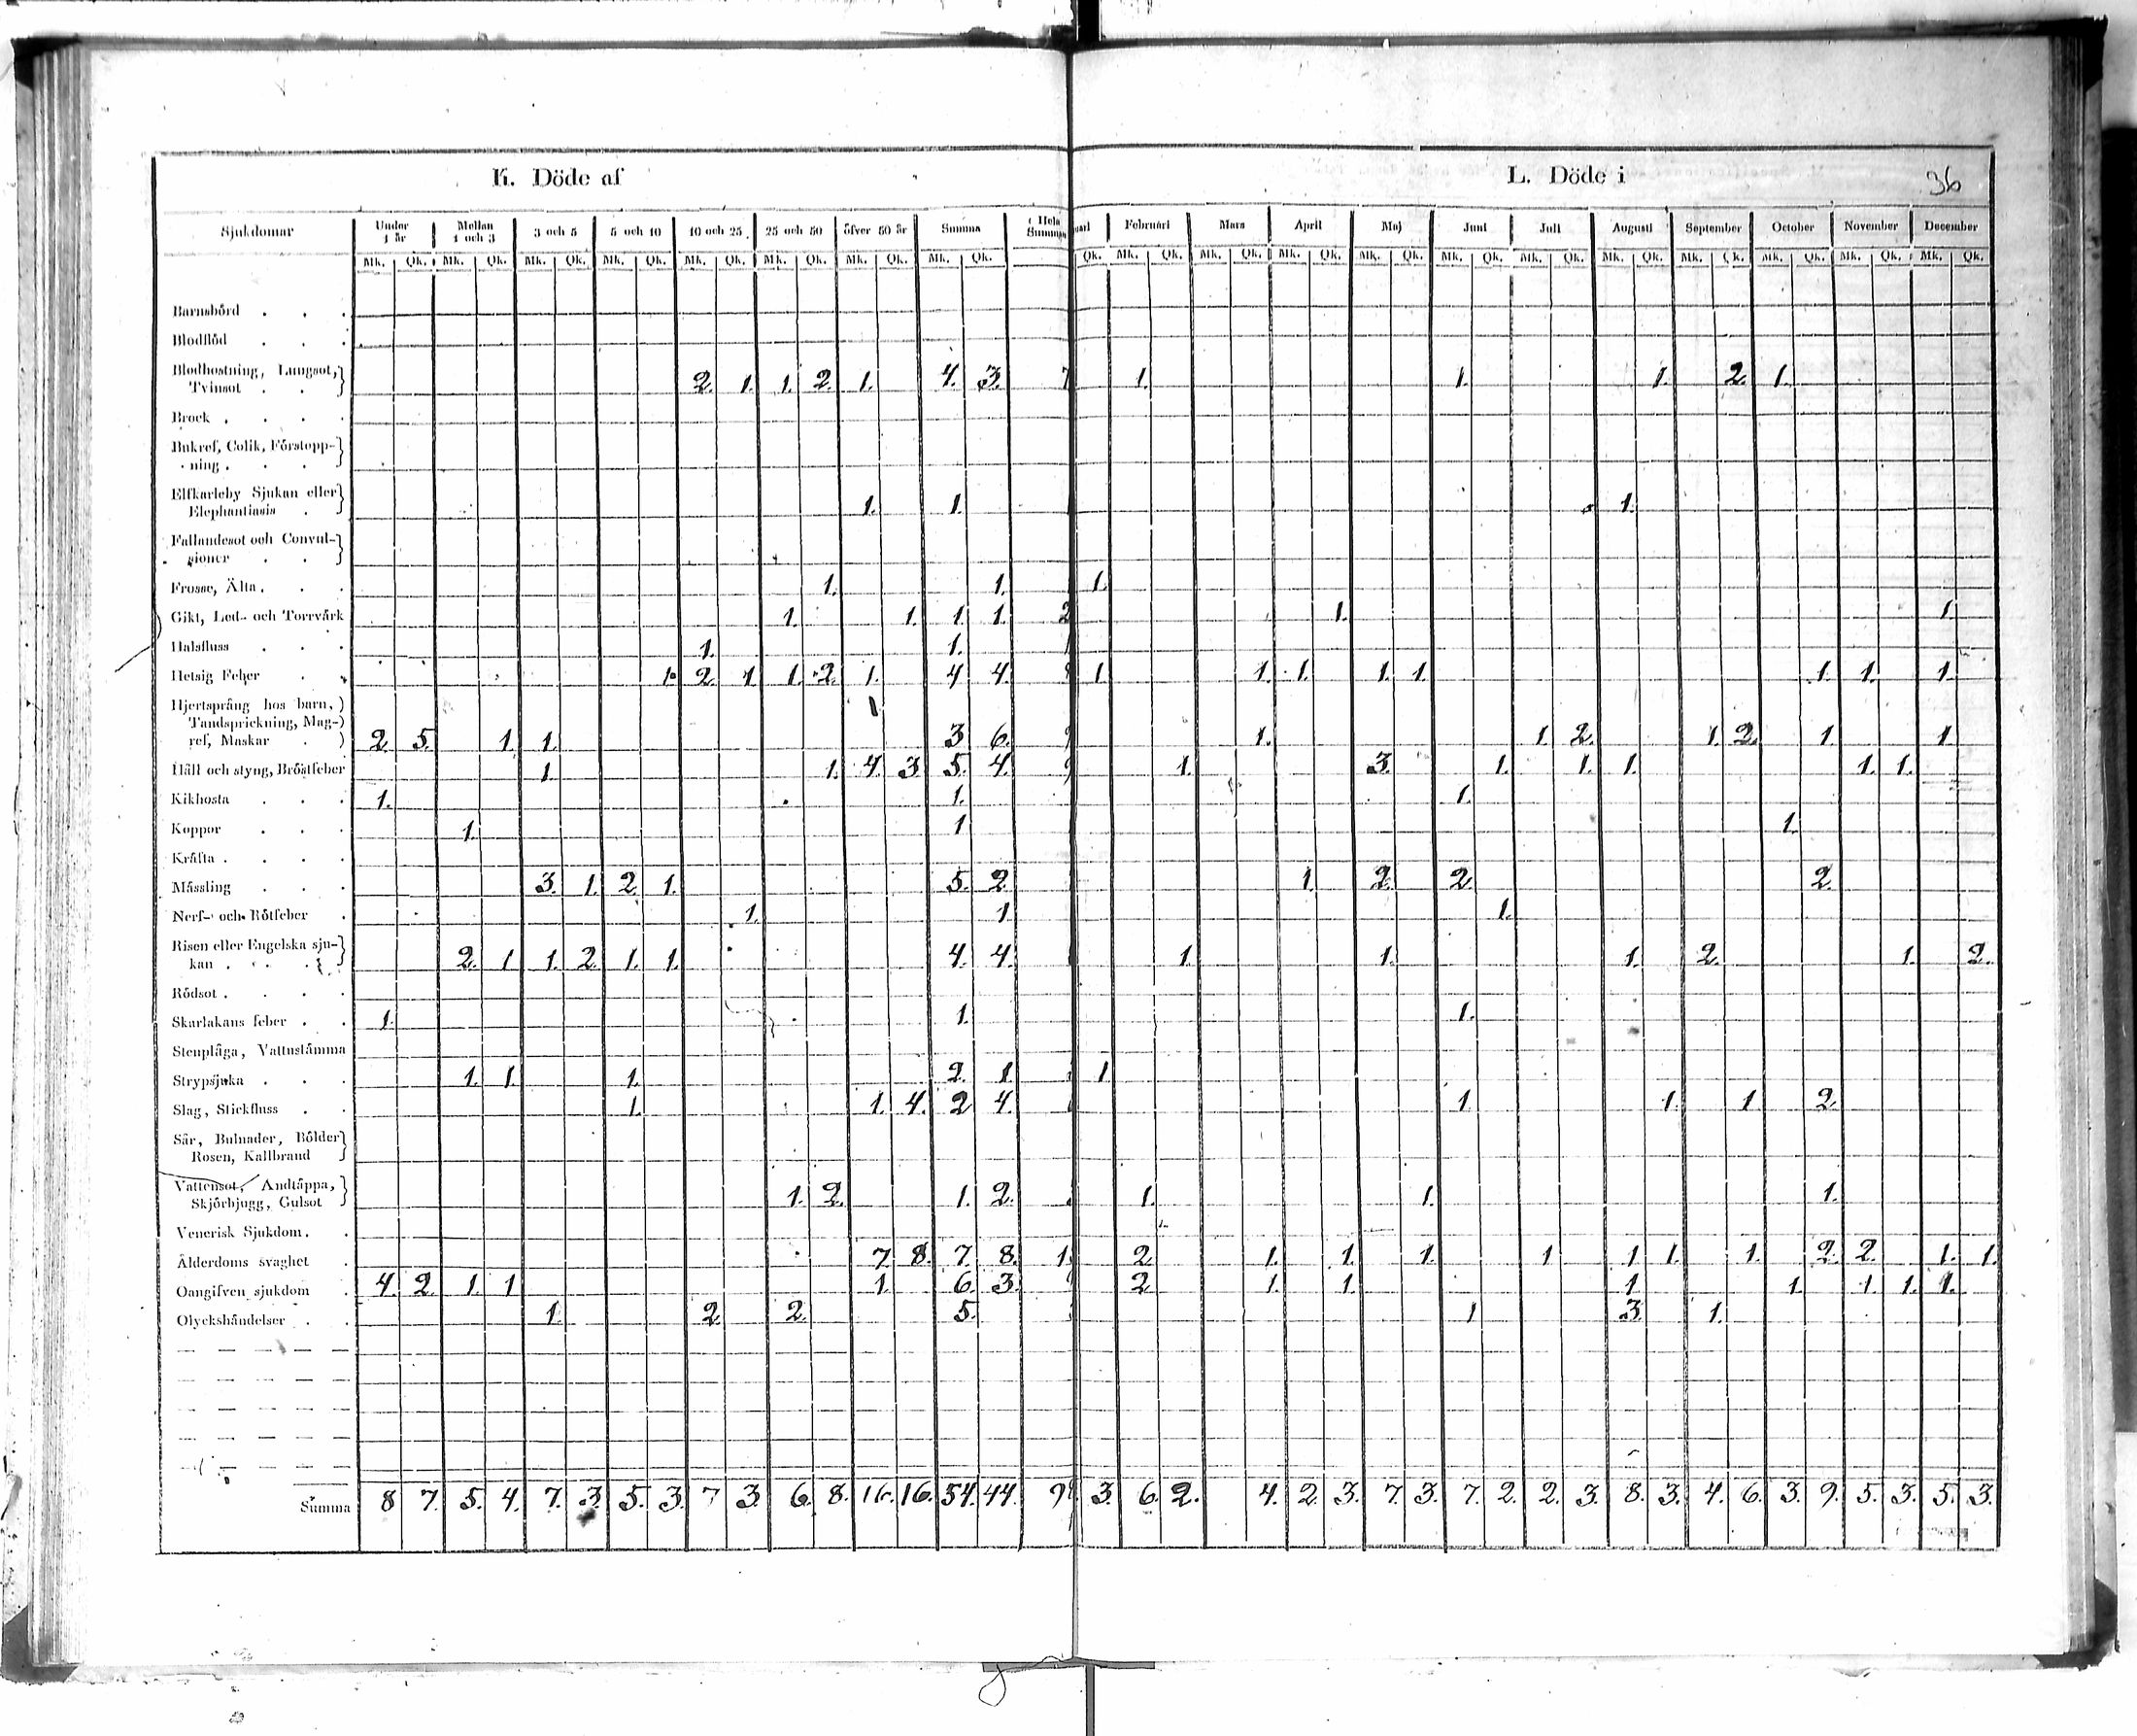 K. Döde af
L. Döde i
36
Sjukdomar Under 1 år Mellan 1 och 3 3 och 5 5 och 10 10 och 25 25 och 50 öfver 50 år Summa Hela Summan
Februari Mars April Maj Juni Juli Augusti September October November December
Mk. Qk. Mk. Qk. Mk. Qk. Mk. Qk. Mk. Qk. Mk. Qk. Mk. Qk. Mk. Qk. Qk. Mk. Qk. Mk. Qk. Mk. Qk. Mk. Qk. Mk. Qk. Mk. Qk. Mk. Qk. Mk. Qk. Mk. Qk. Mk. Qk. Mk. Qk.
Barnsbörd . . .
Blodflöd . . .
Blodhostning, Lungsot,
Tvinsot . . 2. 1. 1. 2. 1. 4. 3. 7 1. 1. 1. 2. 1.
Brock . . . .
Bukref, Colik, Förstopp-
ning . . .
Elfkarleby Sjukan eller
Elephantiasis . 1. 1. 1.
Fallandesot och Convul-
sioner . .
Frossa, Älta . . . 1. 1. 1.
Gikt, Led- och Torrvärk 1. 1. 1. 1. 2 1. 1.
Halsfluss . . . 1. 1.
Hetsig Feber . . 1. 2. 1 1. 2. 1. 4 4. 1. 1. 1. 1. 1. 1. 1. 1.
Hjertsprång hos barn,
Tandsprickning, Mag-
ref, Maskar . 2. 5. 1. 1. 3 6. 9 1. 1. 2. 1. 2. 1. 1
Håll och styng, Bröstfeber 1. 1. 4. 3. 5. 4. 9 1. 3. 1. 1. 1. 1. 1.
Kikhosta . . . 1. 1. 1.
Koppor . . . 1. 1 1.
Kräfta . . . .
Mässling . . . 3. 1. 2. 1. 5. 2. 1 2. 2. 2.
Nerf- och Rötfeber . 1. 1 1.
Risen eller Engelska sju-
kan . . . 2. 1 1. 2. 1. 1. 4. 4. 1. 1. 1. 2. 1. 2.
Rödsot . . . .
Skarlakans feber . . 1. 1. 1.
Stenplåga, Vattustämma
Strypsjuka . . . 1. 1. 1. 2. 1 1
Slag, Stickfluss . . 1. 1. 4. 2 4. 1. 1. 1. 2.
Sår, Bulnader, Bölder
Rosen, Kallbrand
Vattensot, Andtäppa,
Skjörbjugg, Gulsot 1. 2. 1. 2. 1. 1. 1.
Venerisk Sjukdom . .
Ålderdoms svaghet . 7 8. 7. 8. 1. 2. 1. 1. 1. 1 1 1. 1. 2. 2. 1. 1.
Oangifven sjukdom . 4. 2. 1. 1 1. 6. 3. 2. 1. 1. 1 1. 1. 1. 1.
Olyckshändelser . . 1. 2. 2. 5. 1 3. 1.
Summa 8 7. 5. 4. 7. 3. 5. 3. 7 3. 6. 8. 16. 16. 54. 44. 9 3. 6. 2. 4. 2. 3. 7. 3. 7. 2. 2. 3. 8. 3. 4. 6. 3. 9. 5. 3. 5. 3.